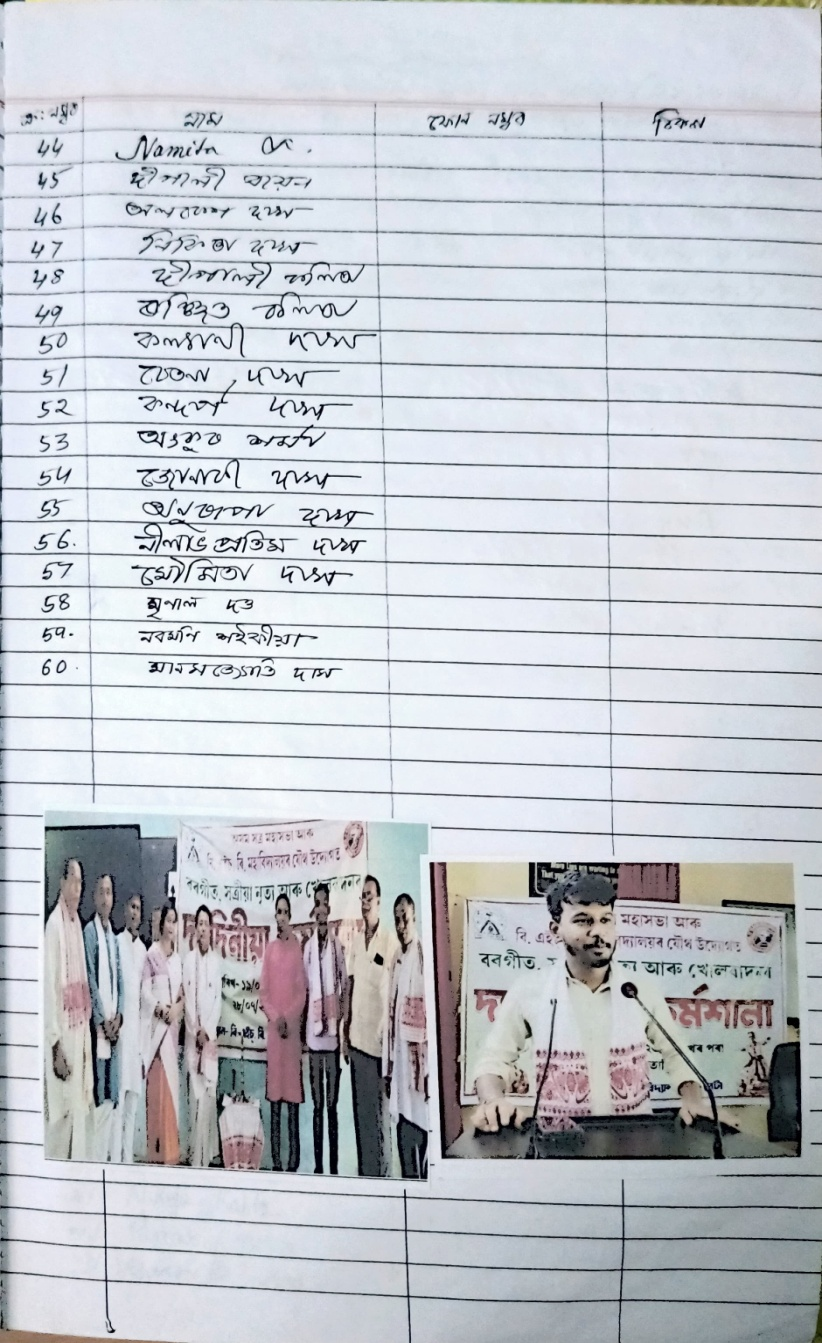 ক্ৰ: নম্বৰ নাম ফোন নম্বৰ ঠিকনা
44 Namita
45 দীপালী বায়ন
46 দাস
47 নিকিতা দাস
48 দীপালী কলিতা
49 কলিতা
50 কল্যাণী দাস
51 চেতনা দাস
52 কন্দৰ্প দাস
53 অংকুৰ শৰ্মা
54 জোনাকী দাস
55 দাস
56. নীলাভ প্ৰতিম দাস
57 মৌমিতা দাস
58 মৃণাল দত্ত
59. নবমণি শইকীয়া
60. মানসজ্যোতি দাস
অসম সত্ৰ মহাসভা আৰু
বি. মহাবিদ্যালয়ৰ যৌথ উদ্যোগত
বৰগীত, সত্ৰীয়া নৃত্য আৰু
দিনীয়া
মহাসভা আৰু
বি. এইচ দ্যালয়ৰ যৌথ উদ্যোগত
বৰগীত, ত্য আৰু খোলবাদনৰ
দ ৰ্মশালা